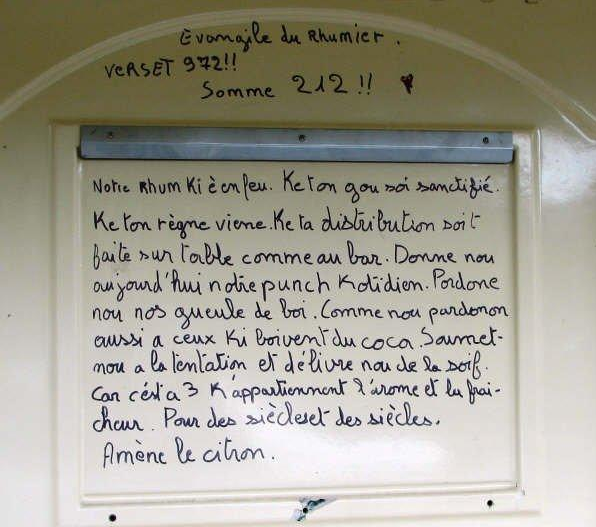 Evangile du Rhumier.
VERSET 972!!
Somme 212 !!
Notre Rhum Ki è en feu. Ke ton gou soi sanctifié.
Ke ton règne viene. Ke ta distribution soit
faite sur table comme au bar. Donne nou
aujourd'hui notre punch Kotidien. Pardone
nou nos gueule de boi. Comme nou pardonon
aussi a ceux Ki boivent du coca. Soumet-
nou a la tentation et délivre nou de la soif.
Car cést a 3 K'appartiennent l'arome et la frai-
cheur. Pour des siècleset des siècles.
Amène le citron.